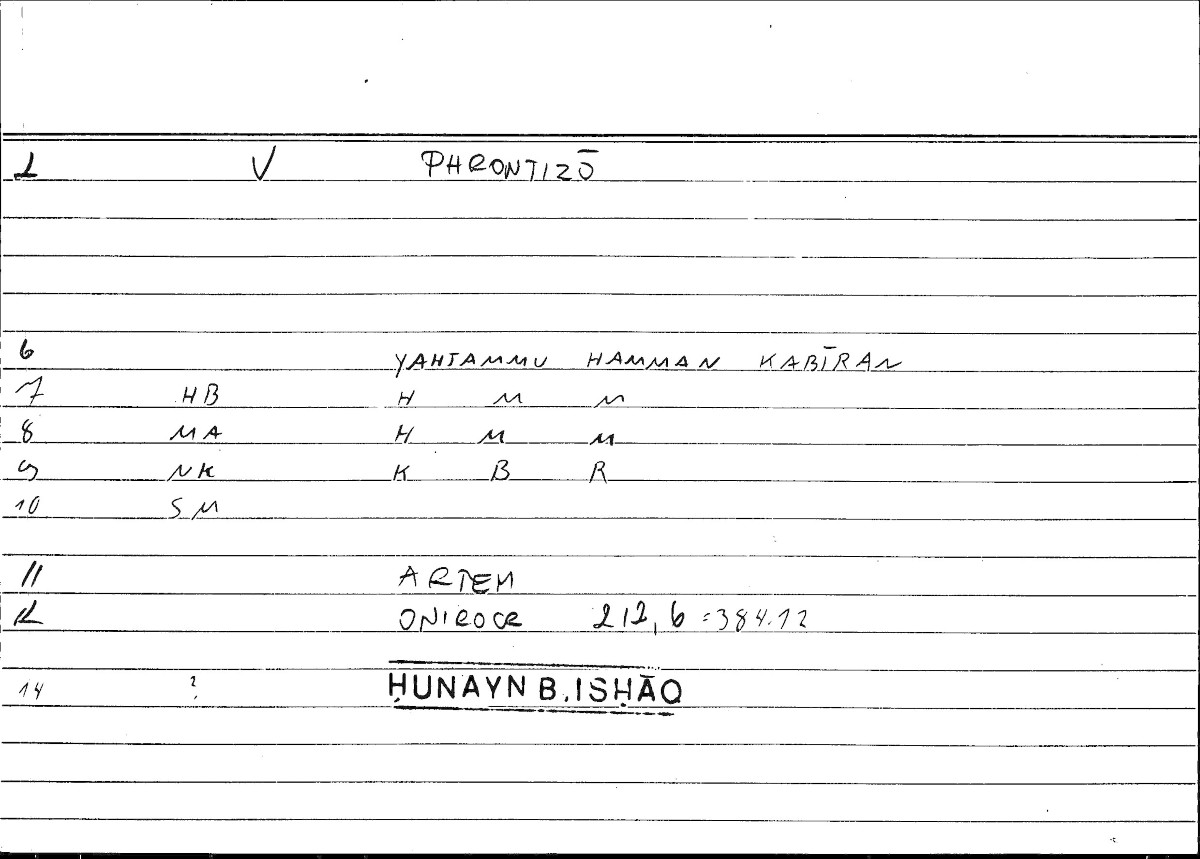 1 V PHRONTIZŌ
6 YAHTAMMU HAMMAN KABĪRAN
7 HB H M M
8 MA H M M
9 NK K B R
10 SM
11 ARTEM
12 ONIROCR 212,6 =384.12
14 ? ḤUNAYN B. ISḤĀQ